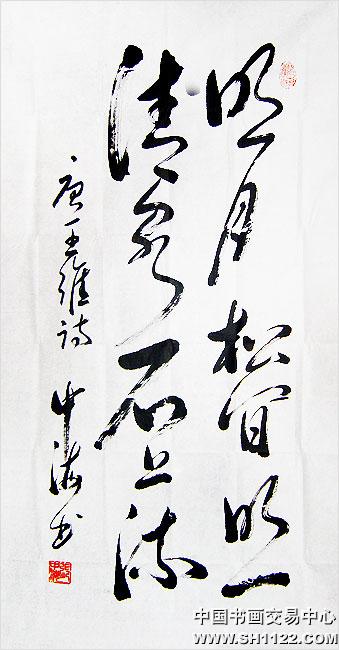 明月松间照
清泉石上流
唐王维诗 中海书
中国书画交易中心
WWW.SH1122.COM